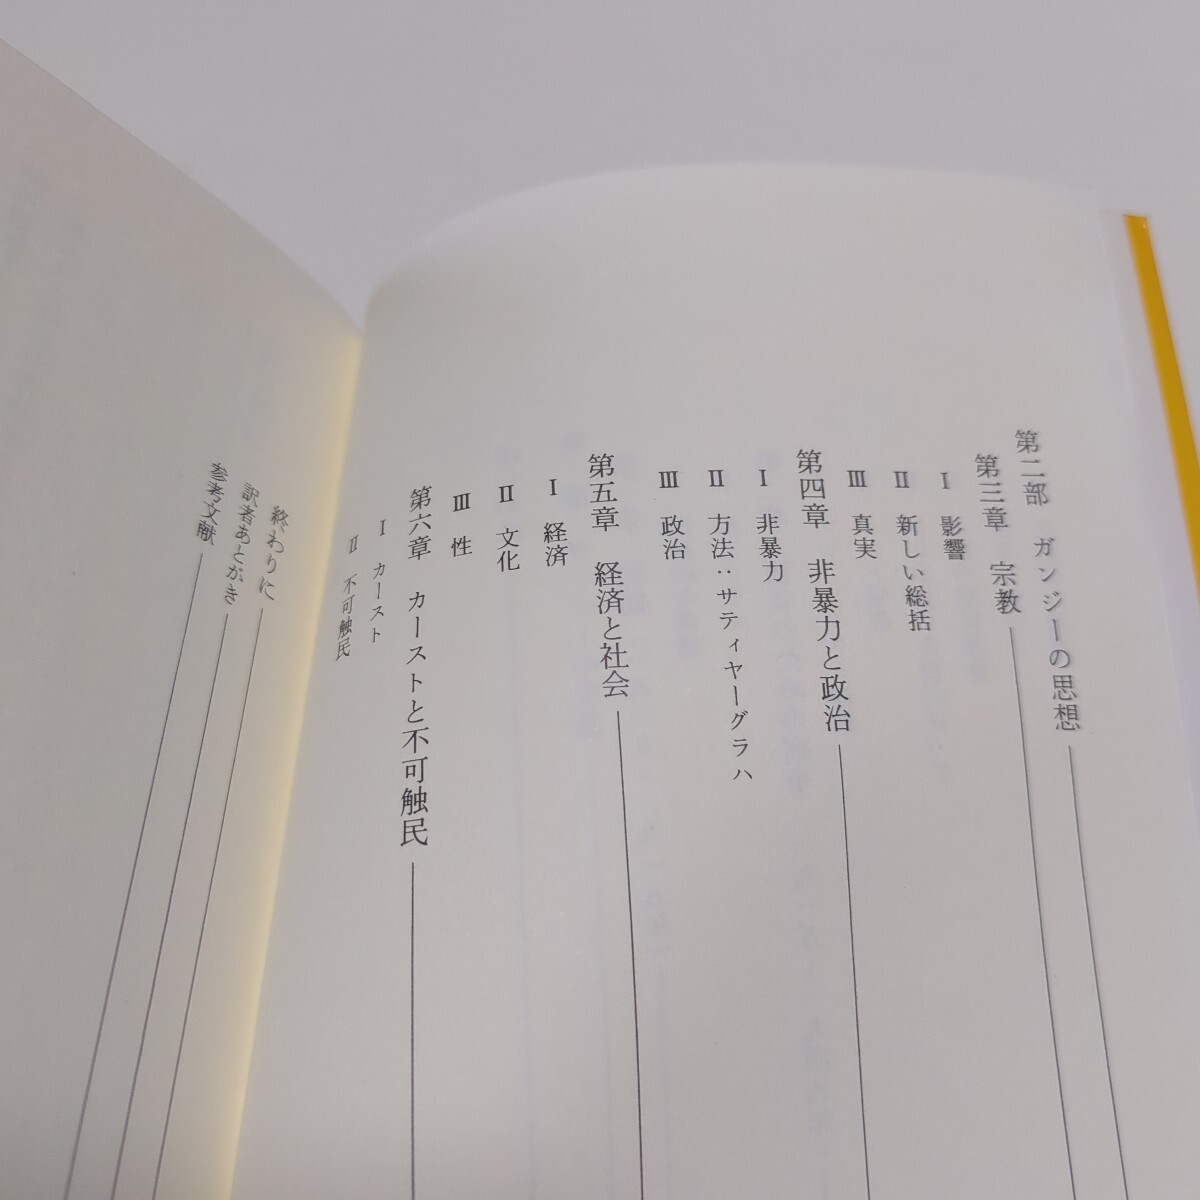 第二部　ガンジーの思想
第三章　宗教
Ⅰ　影響
Ⅱ　新しい総括
Ⅲ　真実
第四章　非暴力と政治
Ⅰ　非暴力
Ⅱ　方法：サティヤーグラハ
Ⅲ　政治
第五章　経済と社会
Ⅰ　経済
Ⅱ　文化
Ⅲ　性
第六章　カーストと不可触民
Ⅰ　カースト
Ⅱ　不可触民
終わりに
訳者あとがき
参考文献